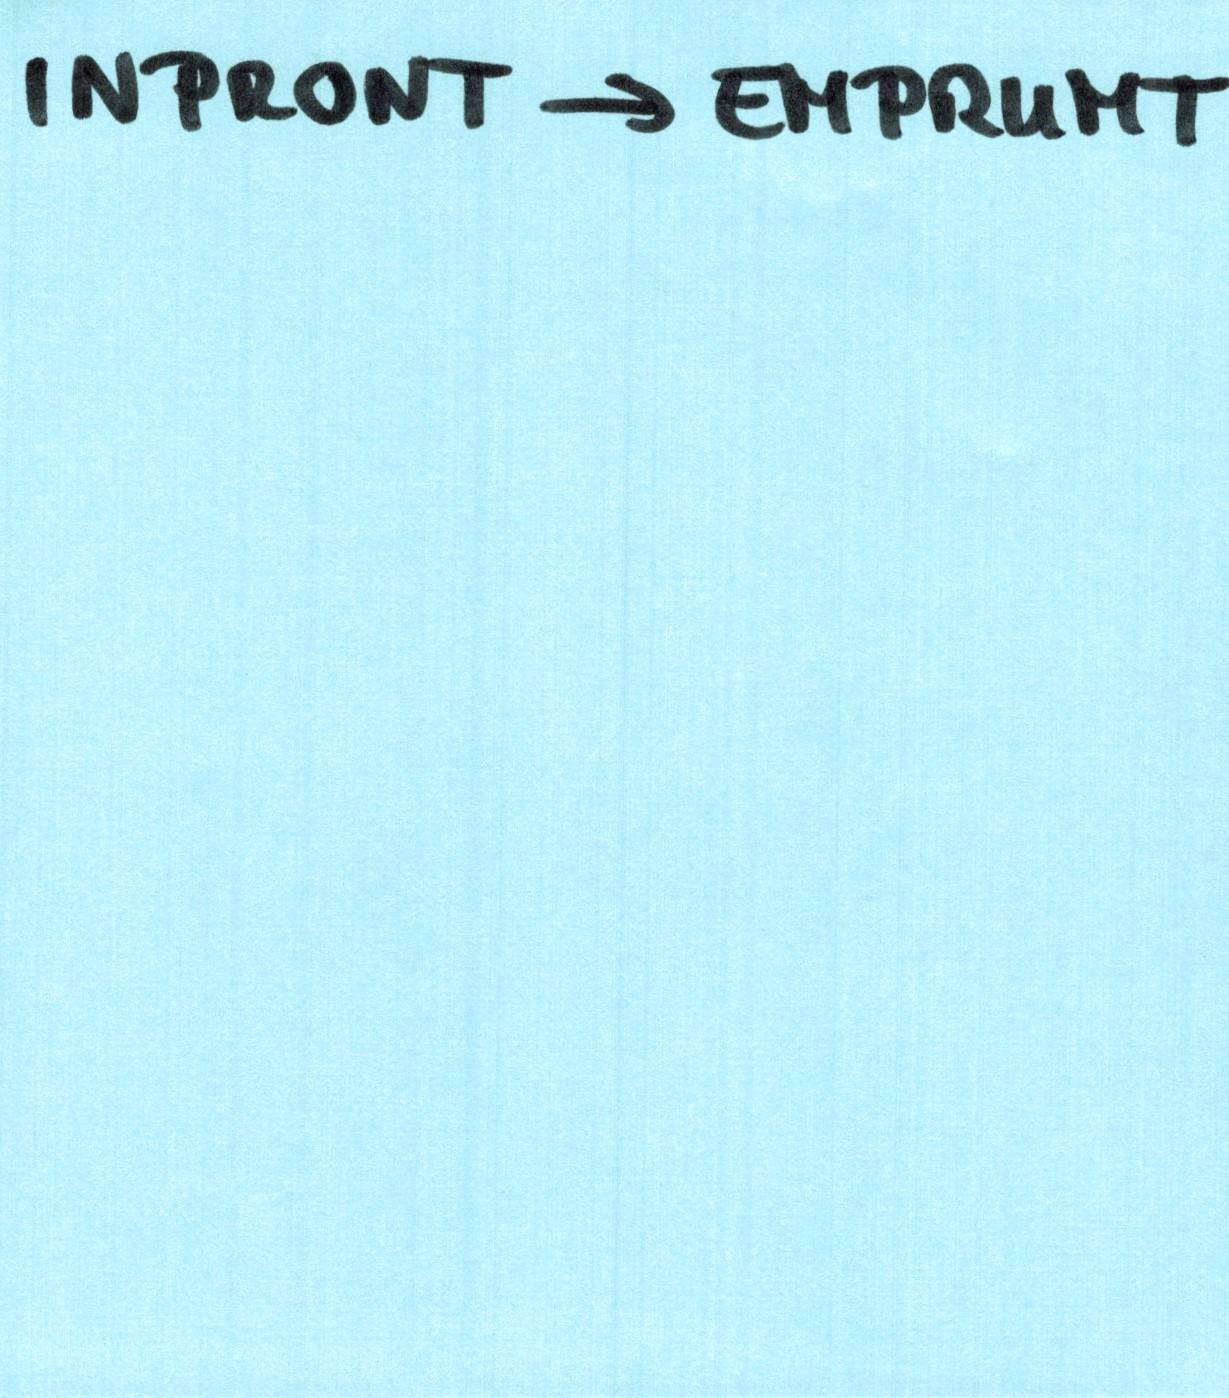 INPRONT → EMPRUMT